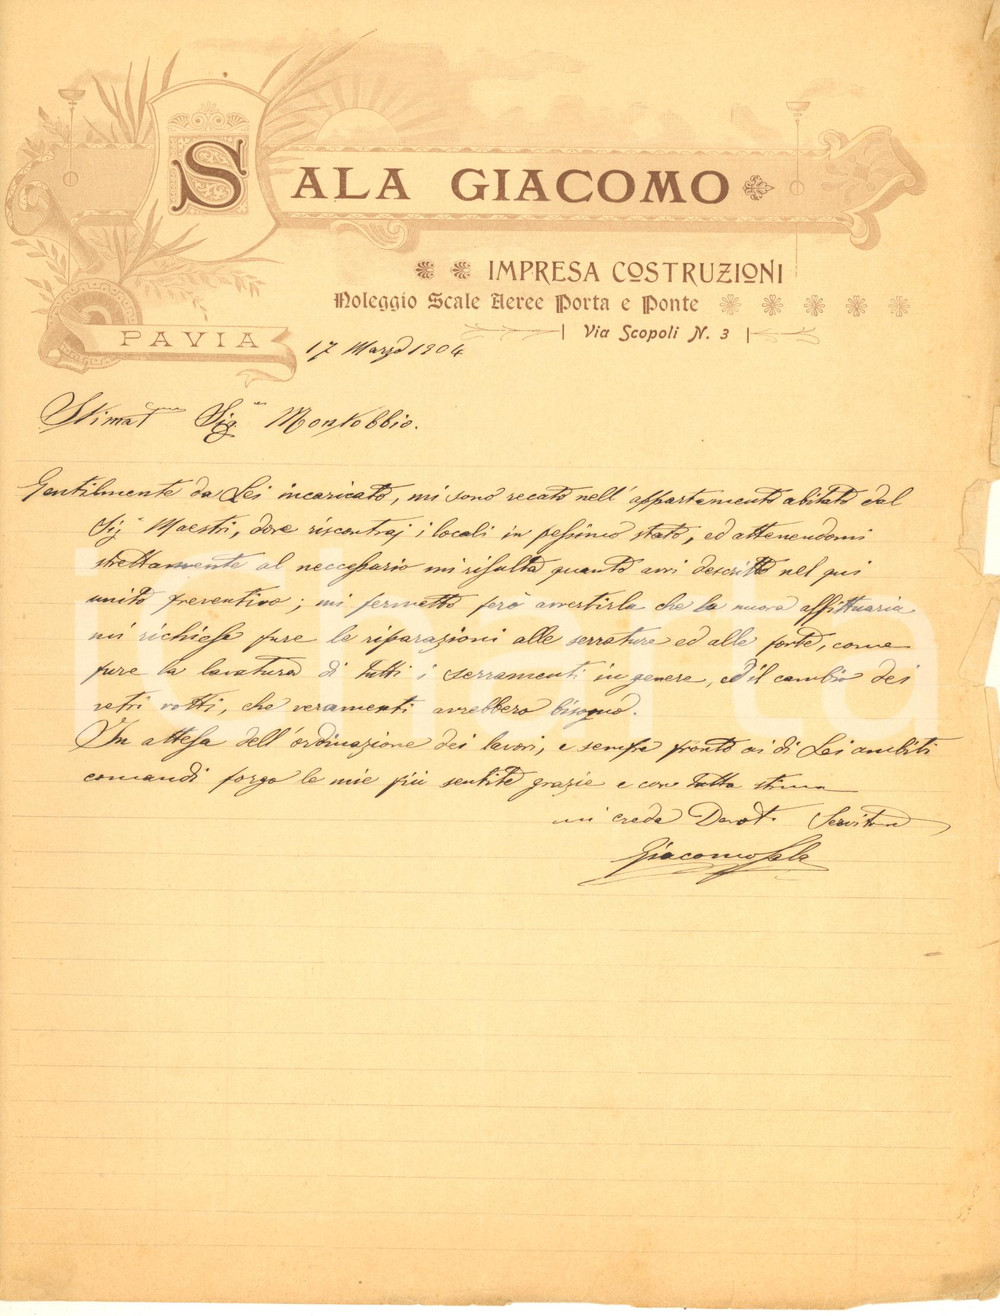 SALA GIACOMO
IMPRESA COSTRUZIONI
Noleggio Scale Aeree Porta e Ponte
Via Scopoli N. 3
PAVIA
17 Marzo 1904
Stimat Sig Montobbio.
Gentilmente da Lei incaricato, mi sono recato nell'appartamento abitato dal
Sig Maestri, dove riscontraj i locali in pessimo stato, ed attenendomi
strettamente al neccessario mi risulta quanto avvi descritto nel qui
unito preventivo; mi permetto però avvertirla che la nuova affittuaria
mi richiese pure le riparazioni alle serrature ed alle porte, come
pure la lavatura di tutti i serramenti in genere, ed il cambio dei
vetri rotti, che veramenti avrebbero bisogno.
In attesa dell'ordinazione dei lavori, e sempre pronto ai di Lei ambiti
comandi porgo le mie più sentite grazie e con tutta stima
mi creda Devot. Servitore
Giacomo Sala
iCharta